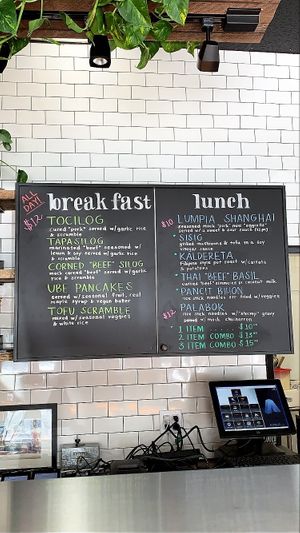 breakfast
ALL DAY!
$12
TOCILOG
cured "pork" served w/garlic rice
& scramble
TAPASILOG
marinated "beef" seasoned w/
lemon & soy served w/garlic rice
& scramble
CORNED "BEEF" SILOG
served w/garlic
rice & scramble
UBE PANCAKES
served w/seasonal fruit, real
maple syrup & vegan butter
TOFU SCRAMBLE
mixed w/seasonal veggies
& white rice
lunch
$10
LUMPIA SHANGHAI
SISIG
grilled mushrooms & tofu in a soy
vinegar sauce
KALDERETA
w/carrots
& potatoes
*THAI "BEEF" BASIL
*PANCIT BIJON
rice stick noodles w/veggies
$12
PALABOK
rice stick noodles w/"shrimp" gravy
1 ITEM ..... $10
2 ITEM COMBO $13
3 ITEM COMBO $15